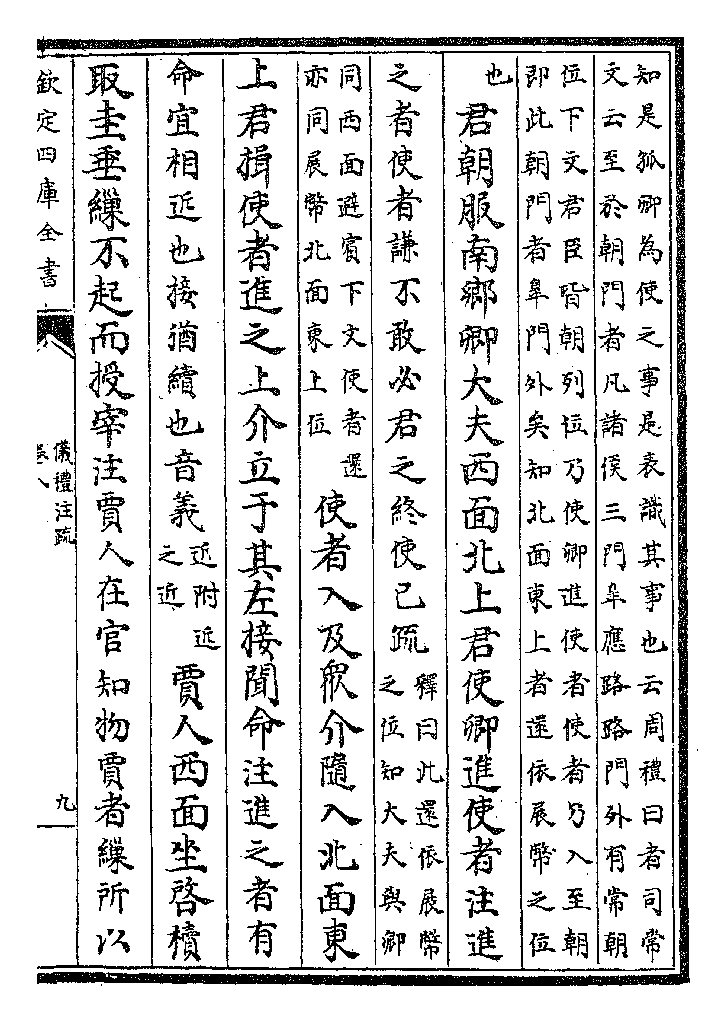 知是孤卿為使之事是表識其事也云周禮曰者司常
文云至於朝門者凡諸侯三門臯應路路門外有常朝
位下文君臣皆朝列位乃使卿進使者使者乃入至朝
即此朝門者臯門外矣知北面東上者還依展幣之位
也
君朝服南鄉卿大夫西面北上君使卿進使者注進
之者使者謙不敢必君之終使已疏
釋曰此還依展幣
之位知大夫與卿
同西面避賓下文使者還
亦同展幣北面東上位
使者入及衆介隨入北面東
上君揖使者進之上介立于其左接聞命注進之者有
命宜相近也接猶續也音義
近附近
之近
賈人西面坐啓櫝
取圭垂繅不起而授宰注賈人在官知物賈者繅所以
欽定四庫全書
儀禮注疏
卷八
九